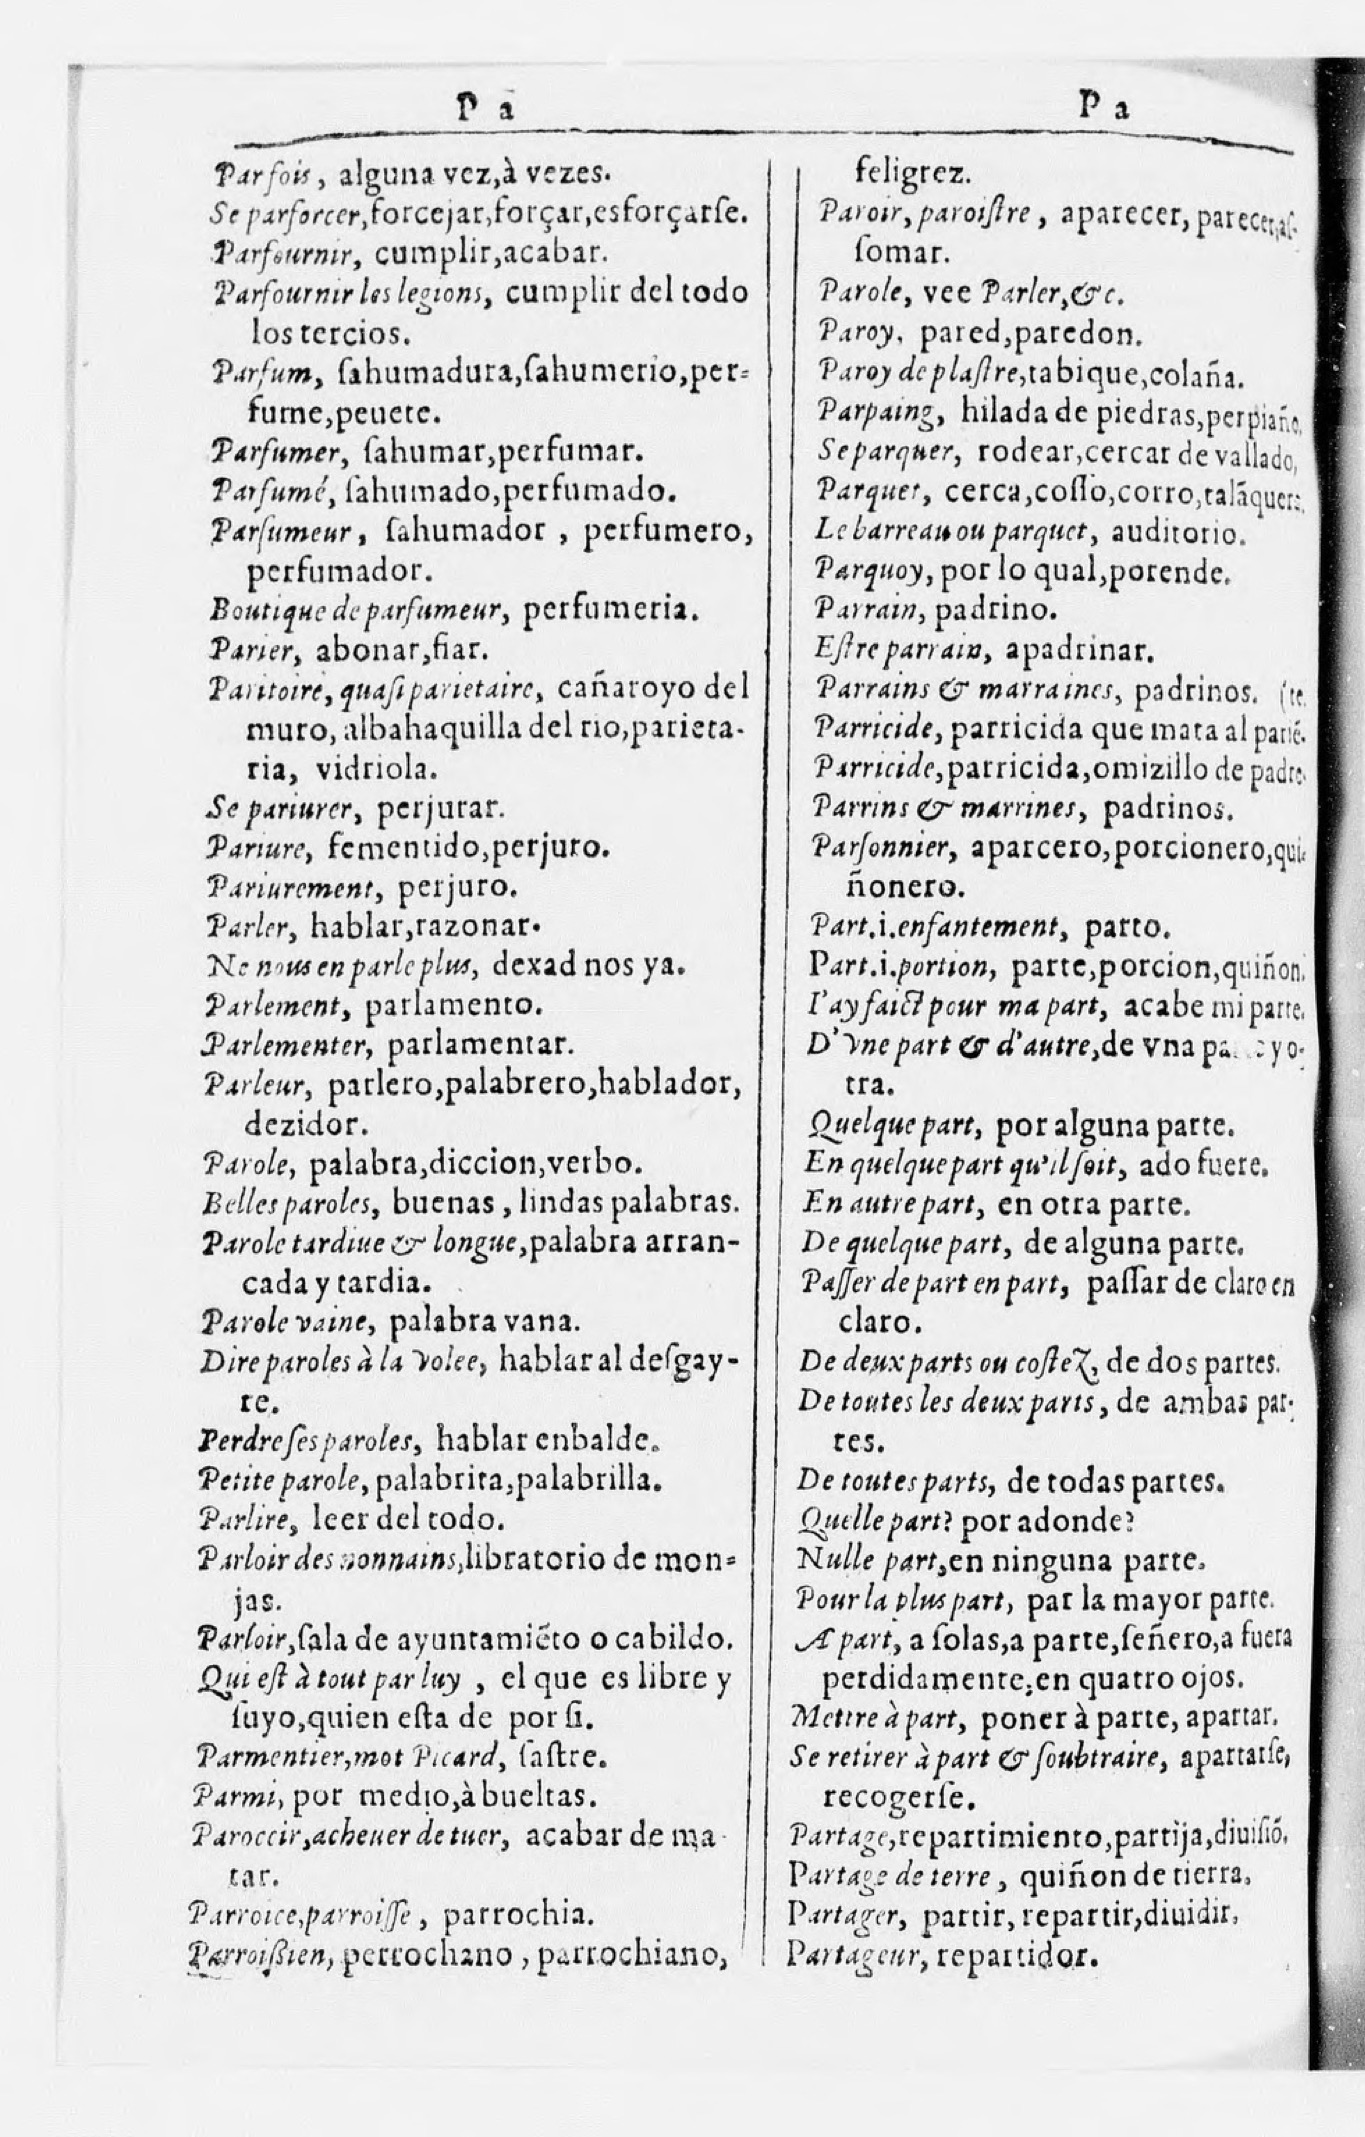 P a
Parfois, alguna vez,à vezes.
Se parforcer,forcejar,forçar,esforçarſe.
Parfournir, cumplir,acabar.
Parfournir les legions, cumplir del todo
los tercios.
Parfum, ſahumadura,ſahumerio,per-
fume,peuete.
Parfumer, ſahumar,perfumar.
Parfumé, ſahumado,perfumado.
Parfumeur, ſahumador, perfumero,
perfumador.
Boutique de parfumeur, perfumeria.
Parier, abonar,fiar.
Paritoire, quaſi parietaire, cañaroyo del
muro, albahaquilla del rio,parieta-
ria, vidriola.
Se pariurer, perjurar.
Pariure, fementido,perjuro.
Pariurement, perjuro.
Parler, hablar,razonar.
Ne nous en parle plus, dexad nos ya.
Parlement, parlamento.
Parlementer, parlamentar.
Parleur, parlero,palabrero,hablador,
dezidor.
Parole, palabra,diccion,verbo.
Belles paroles, buenas, lindas palabras.
Parole tardiue & longue,palabra arran-
cada y tardia.
Parole vaine, palabra vana.
Dire paroles à la volee, hablar al deſgay-
re.
Perdre ſes paroles, hablar enbalde.
Petite parole, palabrita,palabrilla.
Parlire, leer del todo.
Parloir des nonnains,libratorio de mon-
jas.
Parloir,ſala de ayuntamiẽto o cabildo.
Qui eſt à tout par luy, el que es libre y
ſuyo,quien eſta de por ſi.
Parmentier,mot Picard, ſaſtre.
Parmi, por medio,à bueltas.
Paroccir,acheuer de tuer, acabar de ma-
tar.
Parroice,parroiſſe, parrochia.
Parroißien, perrochano, parrochiano,
P a
feligrez.
Paroir, paroiſtre, aparecer, parecer,aſ-
ſomar.
Parole, vee Parler,&c.
Paroy, pared,paredon.
Paroy de plaſtre,tabique,colaña.
Parpaing, hilada de piedras,perpiaño.
Se parquer, rodear,cercar de vallado,
Parquet, cerca,coſſo,corro,talãquera.
Le barreau ou parquet, auditorio.
Parquoy, por lo qual,porende.
Parrain, padrino.
Eſtre parrain, apadrinar.
Parrains & marraines, padrinos. (te.
Parricide, parricida que mata al pariẽ-
Parricide,parricida,omizillo de padre.
Parrins & marrines, padrinos.
Parſonnier, aparcero,porcionero,qui-
ñonero.
Part.i.enfantement, parto.
Part.i.portion, parte,porcion,quiñon.
I'ay faict pour ma part, acabe mi parte.
D'vne part & d'autre,de vna y o-
tra.
Quelque part, por alguna parte.
En quelque part qu'il ſoit, ado fuere.
En autre part, en otra parte.
De quelque part, de alguna parte.
Paſſer de part en part, paſſar de claro en
claro.
De deux parts ou coſtez, de dos partes.
De toutes les deux parts, de ambas par-
tes.
De toutes parts, de todas partes.
Quelle part? por adonde?
Nulle part,en ninguna parte.
Pour la plus part, par la mayor parte.
A part, a ſolas,a parte,ſeñero,a fuera
perdidamente,en quatro ojos.
Mettre à part, poner à parte, apartar.
Se retirer à part & ſoubtraire, apartarſe,
recogerſe.
Partage,repartimiento,partija,diuiſiõ.
Partage de terre, quiñon de tierra.
Partager, partir, repartir,diuidir.
Partageur, repartidor.